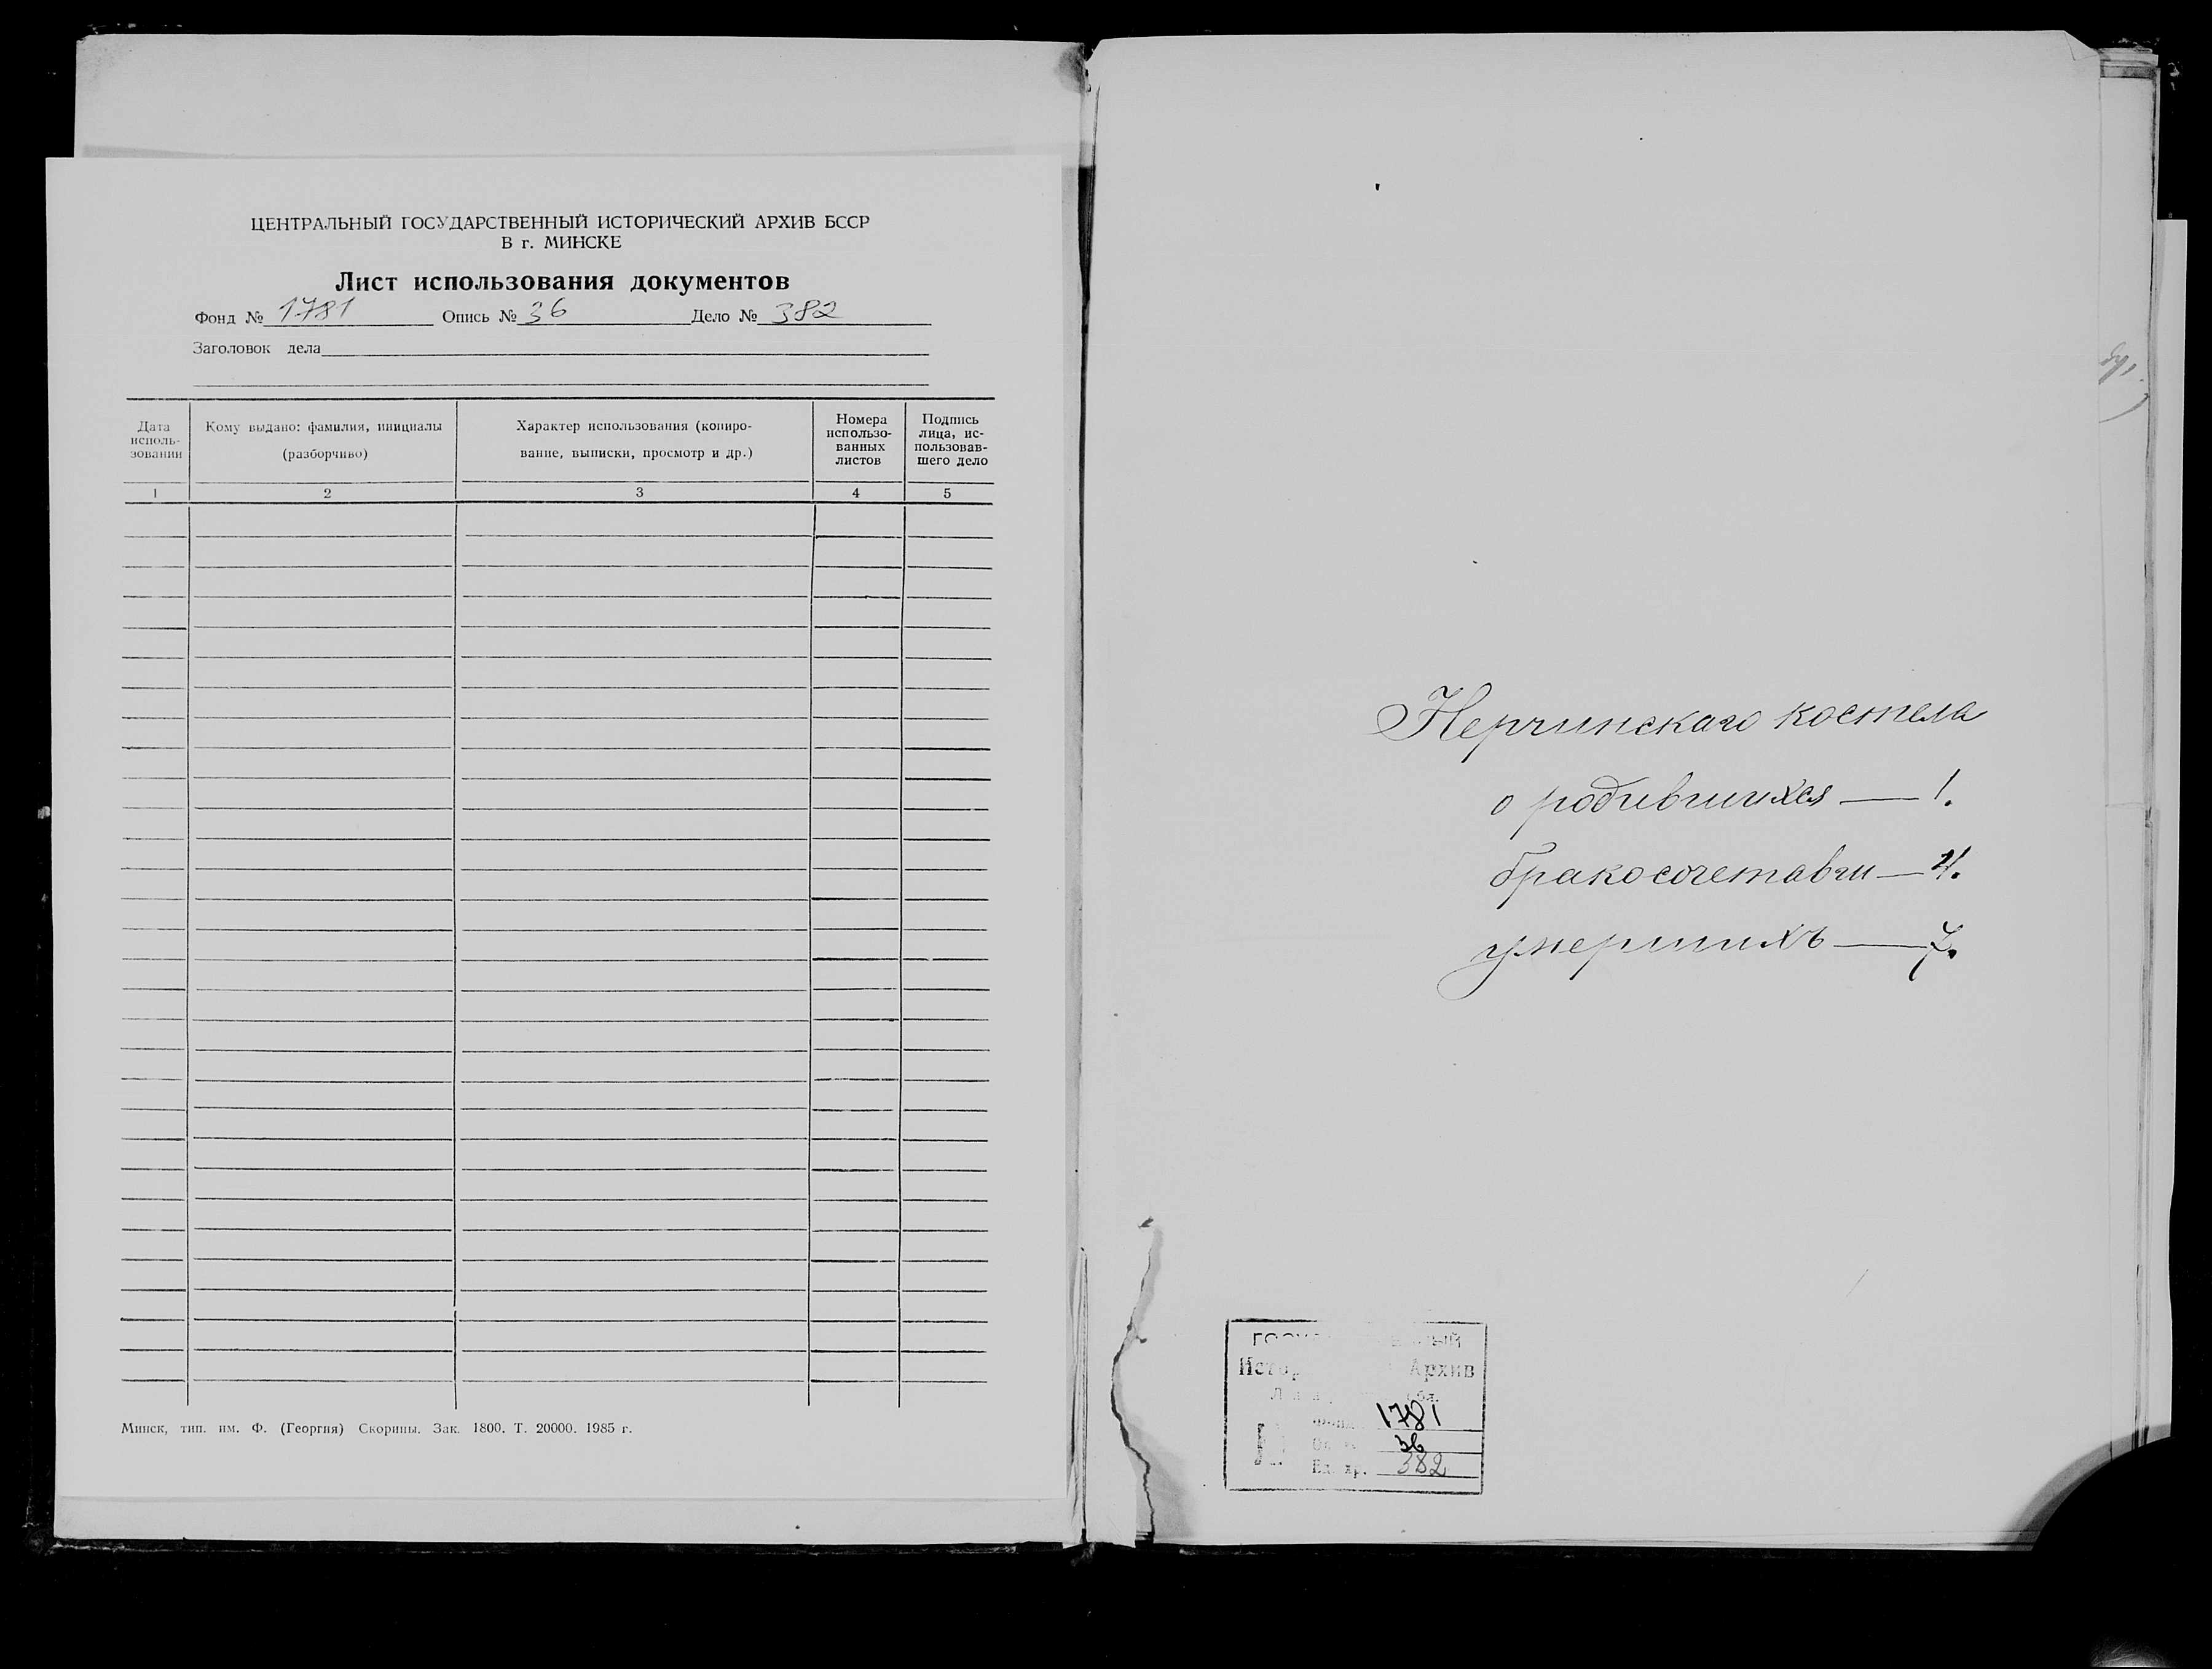 ЦЕНТРАЛЬНЫЙ ГОСУДАРСТВЕННЫЙ ИСТОРИЧЕСКИЙ АРХИВ БССР
В г. МИНСКЕ
Лист использования документов
Фонд № 1781 Опись № 36 Дело № 382
Заголовок дела
Дата исполь-зовании
Кому выдано: фамилия, инициалы (разборчиво)
Характер использования (копиро-вание, выписки, просмотр и др.)
Номера использо-ванных листов
Подпись лица, ис-пользовав-шего дело
1 2 3 4 5
Минск, тип. им. Ф. (Георгия) Скорины. Зак. 1800. Т. 20000. 1985 г.
Нерчинскаго костела
о родившихся — 1.
бракосочетавш — 4.
умершихъ — 7.
Архив
обл.
1781
36
Ед. хр. 382